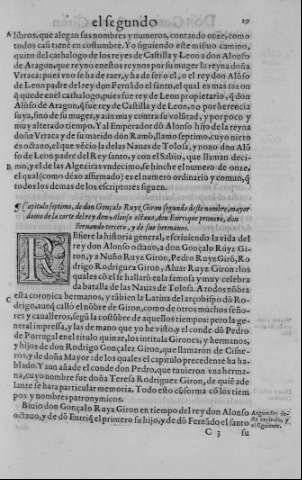 el segundo 19
A libros, que alegan sus nombres y numeros, contando onze, como
todos casi tienē en costumbre. Yo siguiendo este mismo camino,
quito del cathalogo de los reyes de Castilla y Leon a don Alonso
de Aragon, que reyno enestos reynos por su muger la reyna doña
Vrraca: pues no se ha de traer, y ha de ser o el, o el rey don Alōso
de Leon padre del rey don Fernādo el santo, el qual es mas razon
que quede enel cathalogo, pues fue rey de Leon propietario, que don
Alōso de Aragon, que fue rey de Castilla y de Leon, no por herencia
suya, sino de su muger, y aun muy contra su volūtad, y por poco y
muy alterado tiempo. Y al Emperador dō Alonso hijo de la reyna
doña Vrraca y de su marido don Ramō, llamo septimo, cuyo nieto
es octauo, el que vēcio la delas Nauas de Tolosa, y nono don Alō
so de Leon padre del Rey santo, y con el Sabio, que llaman deci-
mo, y el de las Algeziras vndecimo, se hinche el numero de onze,
B el qual (como de vso affirmado) es el numero ordinario y comun, que
todos los demas de los escriptores siguen.
¶ Capitulo septimo, de don Gonçalo Ruyz Giron segundo deste nombre, mayor
domo de la corte del rey don Alonso octauo, don Enrrique primero, don
Fernando tercero, y de sus hermanos.
REfiere la historia general, escriuiendo la vida del
rey don Alonso octauo, a don Gonçalo Ruyz Gi-
ron, y a Nuño Ruyz Giron, Pedro Ruyz Girō, Ro
drigo Rodriguez Giron, Aluar Ruyz Giron: los
quales dize se hallarō en la famosa y muy celebra
da batalla de las Nauas de Tolosa. A todos nōbra
C esta coronica hermanos, y tābien la Latina del arçobispo dō Ro-
drigo, aunque callō el nōbre de Giron, como de otros muchos seño-
res y caualleros, segū la costūbre de aquellos tiempos: pero la ge-
neral impressa, y las de mano que yo he visto, y el conde dō Pedro
de Portugal en el titulo quinze, los intitula Girones, y hermanos,
y hijos de don Rodrigo Gonçalez Giron, que llamaron de Cisne-
ros, y de doña Mayor: de los quales el capitulo precedente ha ha-
blado. Y aun añade el conde don Pedro, que tuuieron vna herma-
na, cuyo nombre fue doña Teresa Rodriguez Giron, de quiē ade
lante se hara particular memoria. Todo esto cōforma cō los tiem
pos y nombres patronymicos.
Biuio don Gonçalo Ruyz Giron en tiempo del rey don Alonso
octauo, y de dō Enrriq̄ el primero su hijo, y de dō Fernādo el santo
C 3 su